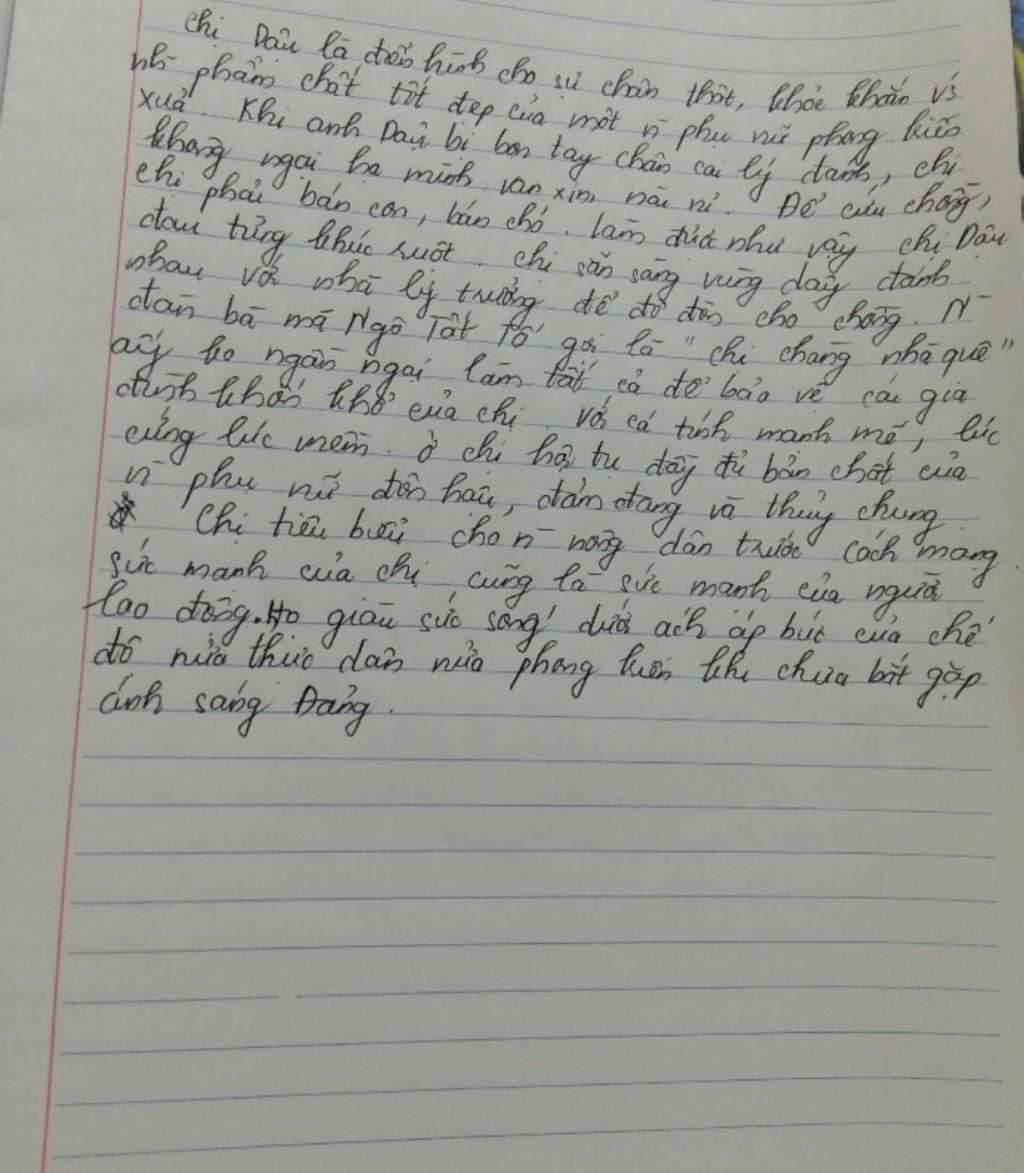 Chị Dậu là điển hình cho sự chân thật, khỏe khoắn vs
nh~ phẩm chất tốt đẹp của một n~ phụ nữ phong kiến
xưa. Khi anh Dậu bị bọn tay chân cai lý đánh, chị
không ngại hạ mình van xin nài nỉ. Để cứu chồng,
chị phải bán con, bán chó. làm được như vậy chị Dậu
đau từng khúc ruột. chị sẵn sàng vùng dậy đánh
nhau với nhà lý trưởng để đỡ đòn cho chồng. N~
đàn bà mà Ngô Tất Tố gọi là "chị chàng nhà quê"
ấy ko ngần ngại làm tất cả để bảo vệ cái gia
đình khốn khổ của chị. với cá tính mạnh mẽ, lúc
cứng lúc mềm. ở chị hội tụ đầy đủ bản chất của
n~ phụ nữ đôn hậu, đảm đang và thủy chung.
Chị tiêu biểu cho n~ nông dân trước cách mạng.
sức mạnh của chị cũng là sức mạnh của người
lao động. Họ giàu sức sống dưới ách áp bức của chế
độ nửa thực dân nửa phong kiến khi chưa bắt gặp
ánh sáng Đảng.